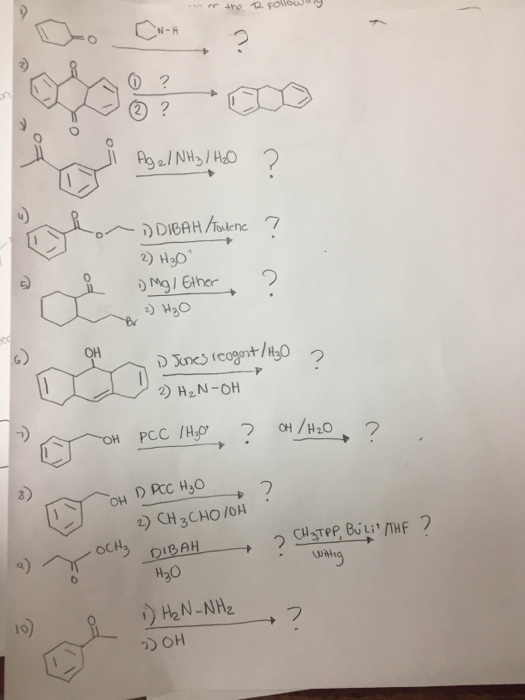 or the 12 following
1) O N-H ?
2) O O ① ? ② ?
3) O O Ag2/NH3/H2O ?
4) O O 1) DIBAH/Toulene ?
2) H3O+
5) O Br 1) Mg/Ether ?
2) H3O
6) OH 1) Jones reagent/H2O ?
2) H2N-OH
7) OH PCC /H3O+ ? OH/H2O ?
8) OH 1) PCC H3O ?
2) CH3CHO/OH
9) OCH3 O DIBAH ? CH3TPP, BuLi+/THF ?
H3O Wittig
10) O 1) H2N-NH2 ?
2) OH